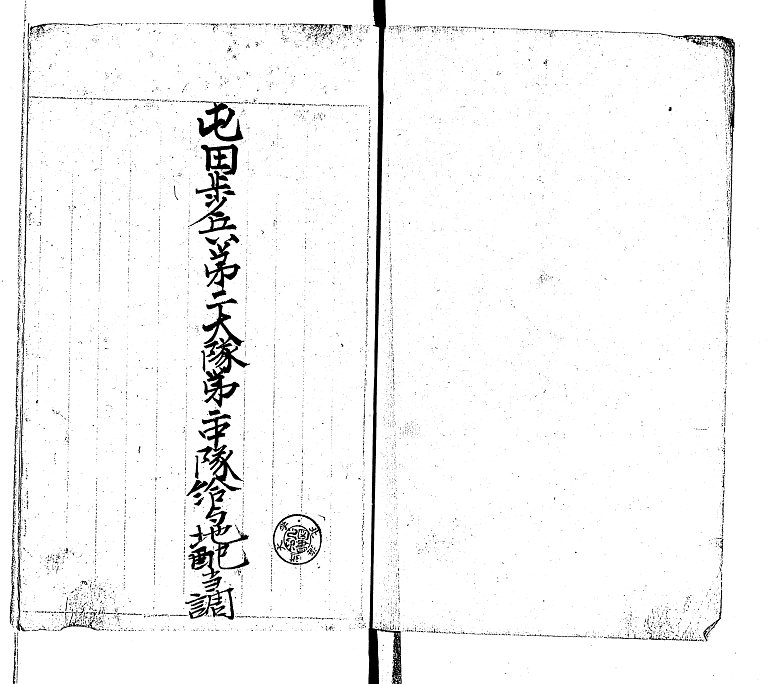 屯田歩兵第二大隊第二中隊給与地配当調